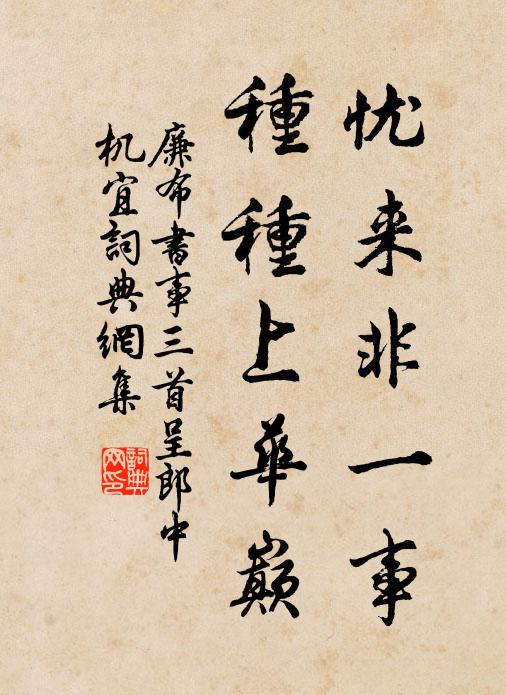 忧来非一事
種種上華巔
廉布書事三首呈郎中
机宜詞典網集
詞典网印